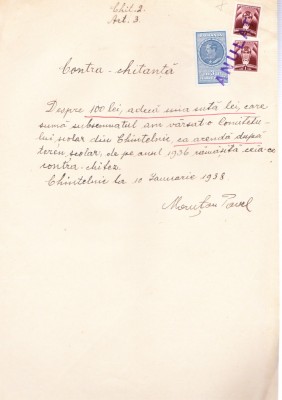 Chit. 2.
Art. 3.
ANULAT
Contra-chitanță
Despre 100 lei, adică una sută lei, care
sumă subsemnatul am vărsat o Comitetu-
lui școlar din Chintelnic ca arendă după
teren școlar, de pe anul 1936 rămășită
contra-chitez.
Chintelnic la 10 Ianuarie 1938
Pavel